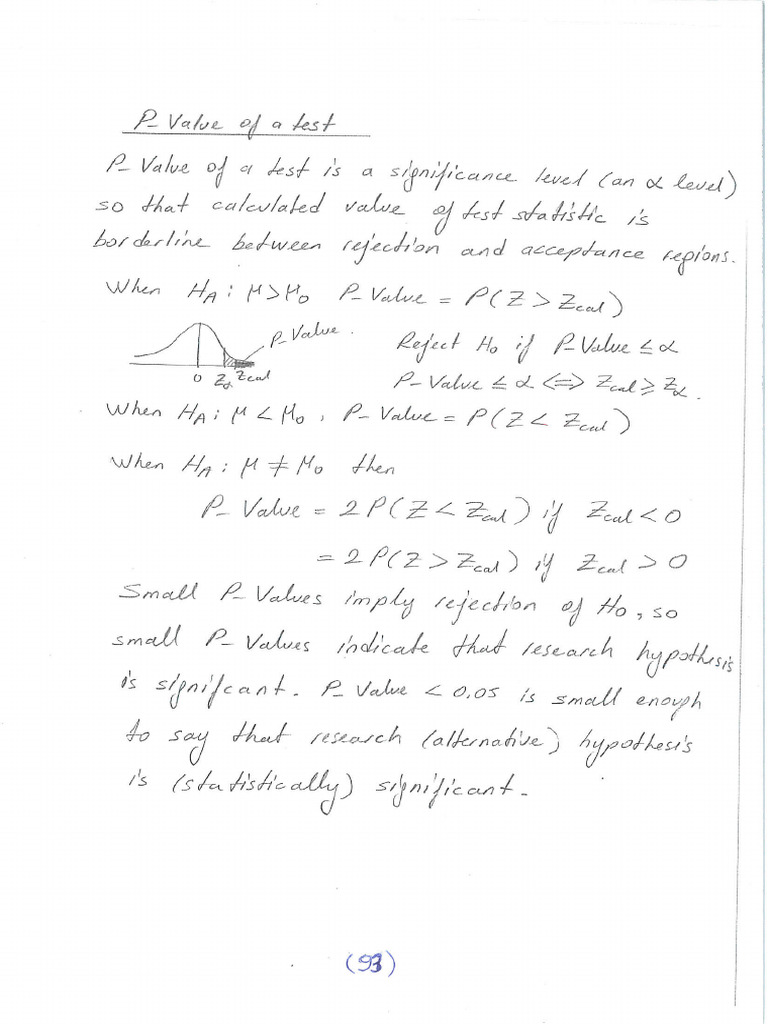 P-Value of a test
P-Value of a test is a significance level (an α level)
so that calculated value of test statistic is
borderline between rejection and acceptance regions.
When H_A : μ > μ_0 P-Value = P(Z > Z_cal)
P-Value.
Reject H_0 if P-Value ≤ α
0 Z_α Z_cal
P-Value ≤ α <=> Z_cal ≥ Z_α.
When H_A : μ < μ_0, P-Value = P(Z < Z_cal)
When H_A : μ ≠ μ_0 then
P-Value = 2P(Z < Z_cal) if Z_cal < 0
= 2P(Z > Z_cal) if Z_cal > 0
Small P-Values imply rejection of H_0, so
small P-Values indicate that research hypothesis
is signifcant. P-Value < 0.05 is small enough
to say that research (alternative) hypothesis
is (statistically) significant.
(93)